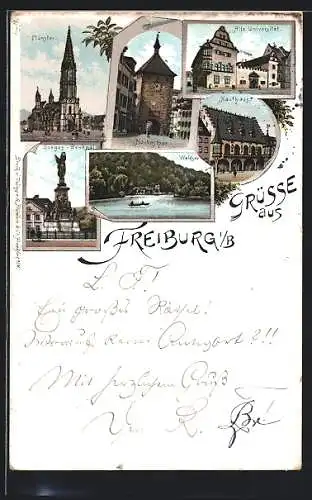 Münster.
Alte Universität.
Kaufhaus.
Sieges-Denkmal
Waldsee
GRÜSSE
AUS
FREIBURG i/B
L. T!
Ein großes Rätsel!
keine Antwort?!!
Mit herzlichem Gruß
R.